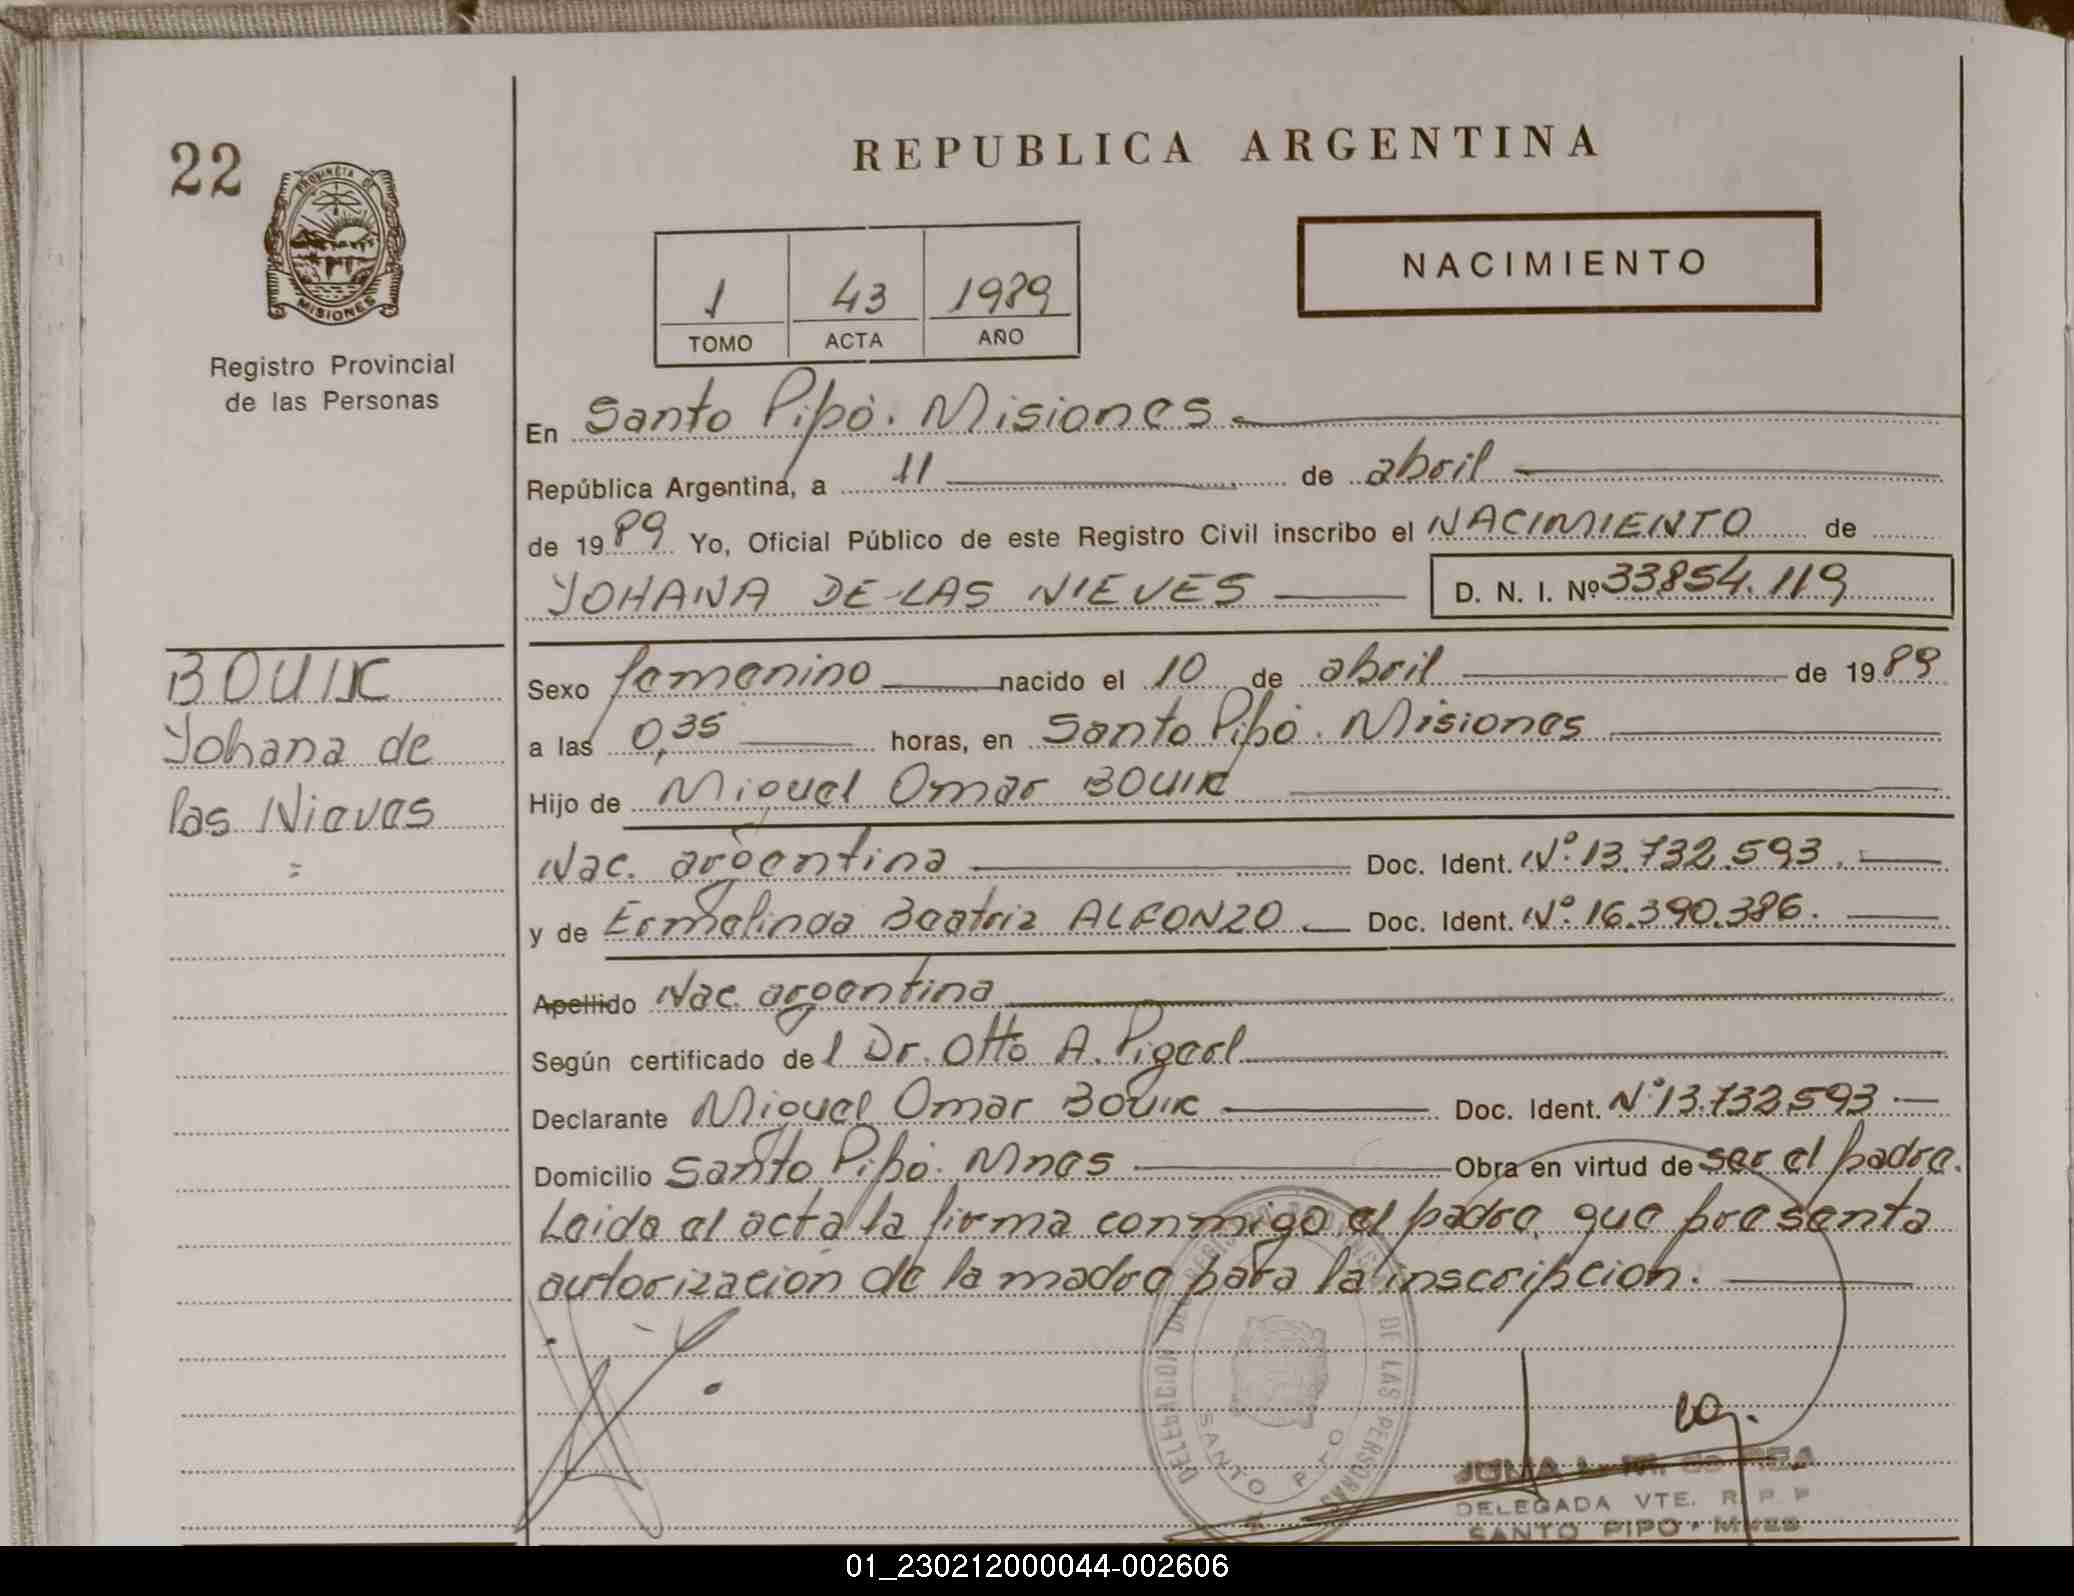 22
PROVINCIA DE
MISIONES
Registro Provincial
de las Personas
REPUBLICA ARGENTINA
1 43 1989
TOMO ACTA AÑO
NACIMIENTO
En Santo Pipó. Misiones
República Argentina, a 11 de abril
de 1989 Yo, Oficial Público de este Registro Civil inscribo el NACIMIENTO de
YOHANA DE LAS NIEVES D. N. I. Nº 33854.119
BOUIK
Yohana de
las Nieves
Sexo femenino nacido el 10 de abril de 1989
a las 0,35 horas, en Santo Pipó. Misiones
Hijo de Miguel Omar BOUIK
Nac. argentina Doc. Ident. Nº 13.732.593.
y de Ermelinda Beatriz ALFONZO Doc. Ident. Nº 16.390.386.
Apellido Nac. argentina
Según certificado del Dr. Otto A. Pigerl
Declarante Miguel Omar BOUIK Doc. Ident. Nº 13.732.593
Domicilio Santo Pipó. Mnes Obra en virtud de ser el padre.
Leida el acta la firma conmigo el padre, que presenta
autorización de la madre para la inscripción.
DELEGACION DE LAS PERSONAS
SANTO PIPO
DELEGADA VTE. R. P. P
SANTO PIPO - Mnes
01_230212000044-002606